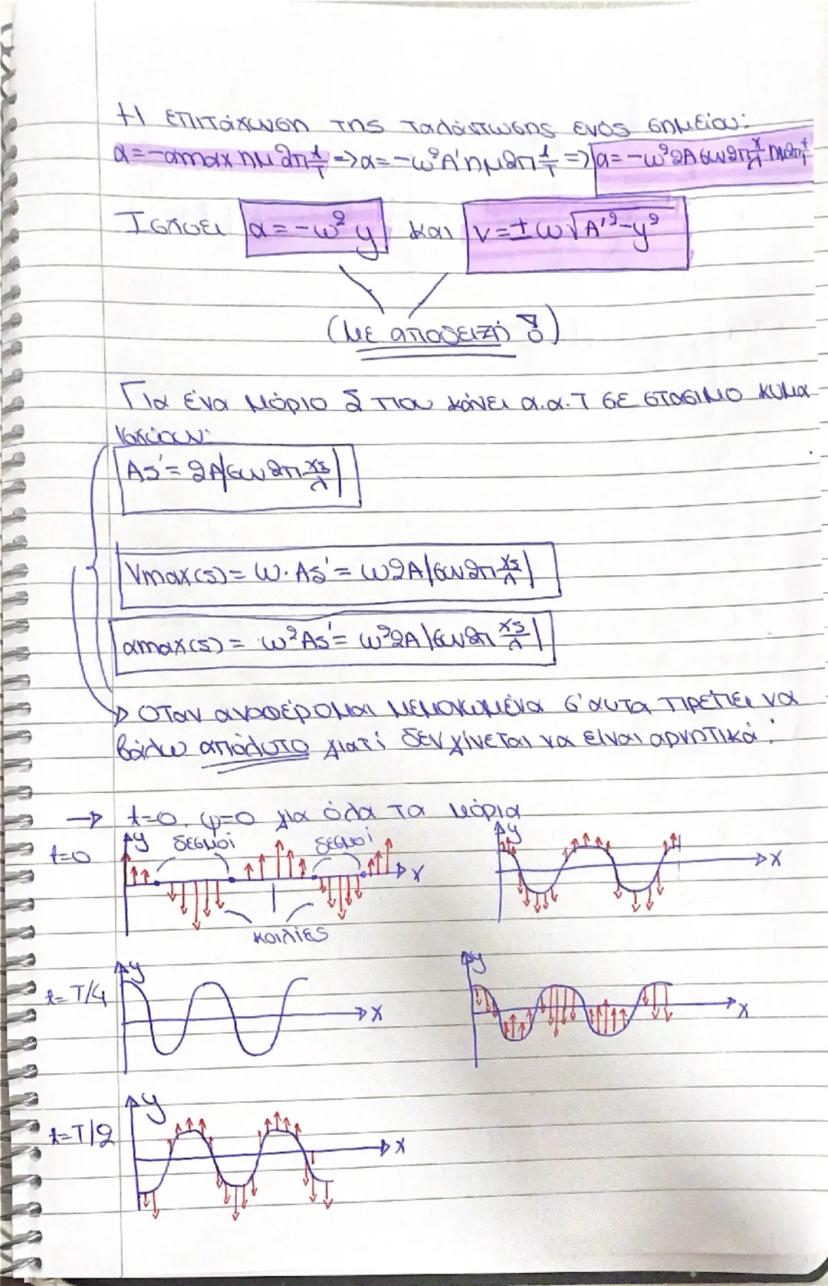 Η επιτάχυνση της ταλάντωσης ενός σημείου:
α=-αmax ημ2π t/T => α=-ω²A'ημ2π t/T => α=-ω²2Aσυν2π x/λ ημ2π t/T
Ισχύει α=-ω²y και v=±ω√A'²-y²
(Με απόδειξη!)
Για ένα μόριο Σ που κάνει α.α.Τ σε στάσιμο κύμα
ισχύουν:
As'= 2A|συν2π xs/λ|
Vmax(s)= ω·As'= ω2A|συν2π xs/λ|
αmax(s)= ω²As'= ω²2A|συν2π xs/λ|
Όταν αναφέρομαι μεμονωμένα σ'αυτά πρέπει να
βάλω απόλυτο γιατί δεν γίνεται να είναι αρνητικά!
→ t=0, φ=0 για όλα τα μόρια
t=0 y δεσμοί δεσμοί x y x
κοιλίες
t=T/4 y x y x
t=T/2 y x